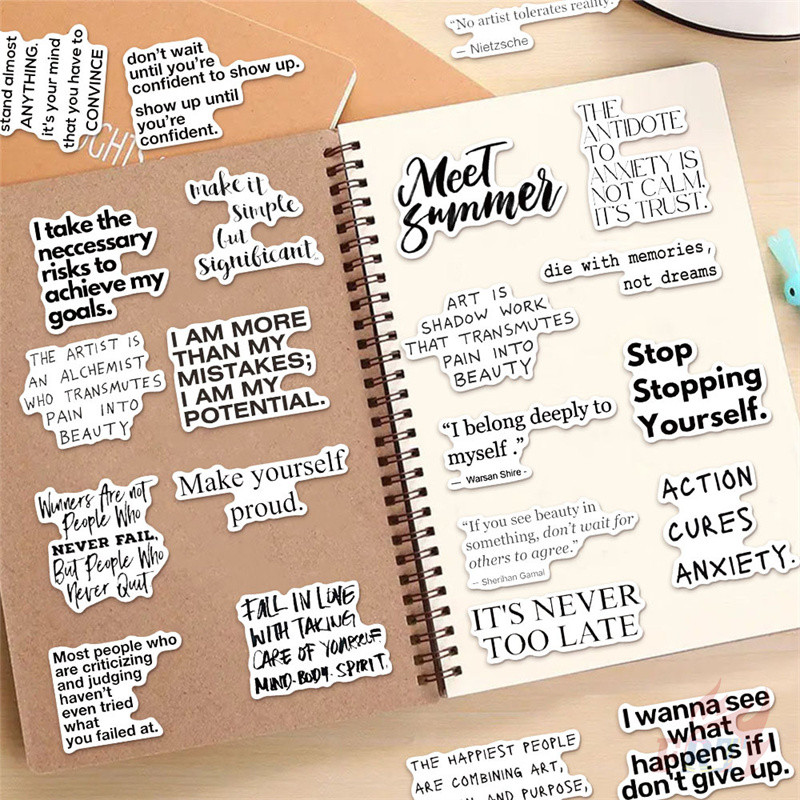 stand almost
ANYTHING.
it's your mind
that you have to
CONVINCE
don't wait
until you're
confident to show up.
show up until
you're
confident.
"No artist tolerates reality."
— Nietzsche
make it
simple
but
significant.
I take the
neccessary
risks to
achieve my
goals.
THE ARTIST IS
AN ALCHEMIST
WHO TRANSMUTES
PAIN INTO
BEAUTY
I AM MORE
THAN MY
MISTAKES;
I AM MY
POTENTIAL.
Winners Are not
People Who
NEVER FAIL,
But People Who
Never Quit
Make yourself
proud.
Most people who
are criticizing
and judging
haven't
even tried
what
you failed at.
FALL IN LOVE
WITH TAKING
CARE OF YOURSELF.
MIND. BODY. SPIRIT.
Meet
Summer
THE
ANTIDOTE
TO
ANXIETY IS
NOT CALM.
IT'S TRUST.
die with memories,
not dreams
ART IS
SHADOW WORK
THAT TRANSMUTES
PAIN INTO
BEAUTY
Stop
Stopping
Yourself.
"I belong deeply to
myself ."
— Warsan Shire -
"If you see beauty in
something, don't wait for
others to agree."
— Sherihan Gamal
ACTION
CURES
ANXIETY.
IT'S NEVER
TOO LATE
THE HAPPIEST PEOPLE
ARE COMBINING ART,
AND PURPOSE,
I wanna see
what
happens if I
don't give up.